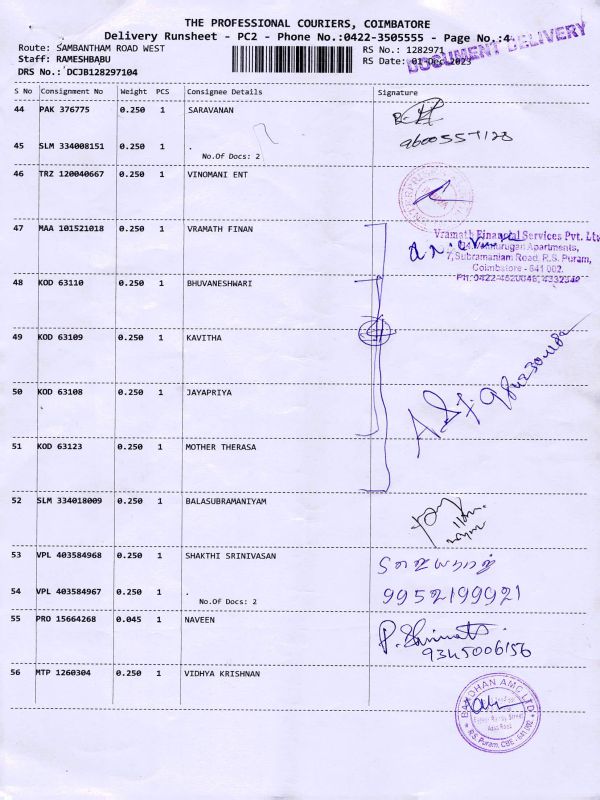 THE PROFESSIONAL COURIERS, COIMBATORE
Delivery Runsheet - PC2 - Phone No.:0422-3505555 - Page No.:4
DOCUMENT DELIVERY
Route: SAMBANTHAM ROAD WEST RS No.: 1282971
Staff: RAMESHBABU RS Date: 01-Dec-2023
DRS No.: DCJB128297104
S No Consignment No Weight PCS Consignee Details Signature
44 PAK 376775 0.250 1 SARAVANAN
9600557128
45 SLM 334008151 0.250 1 .
No.Of Docs: 2
46 TRZ 120040667 0.250 1 VINOMANI ENT
47 MAA 101521018 0.250 1 VRAMATH FINAN
Vramath Financial Services Pvt. Ltd
7,Subramaniam Road, R.S. Puram,
Coimbatore - 641 002.
48 KOD 63110 0.250 1 BHUVANESHWARI
49 KOD 63109 0.250 1 KAVITHA
50 KOD 63108 0.250 1 JAYAPRIYA
51 KOD 63123 0.250 1 MOTHER THERASA
52 SLM 334018009 0.250 1 BALASUBRAMANIYAM
53 VPL 403584968 0.250 1 SHAKTHI SRINIVASAN
54 VPL 403584967 0.250 1 .
No.Of Docs: 2
9952199921
55 PRO 15664268 0.045 1 NAVEEN
9345006156
56 MTP 1260304 0.250 1 VIDHYA KRISHNAN
R.S. Puram, CBE - 641 002